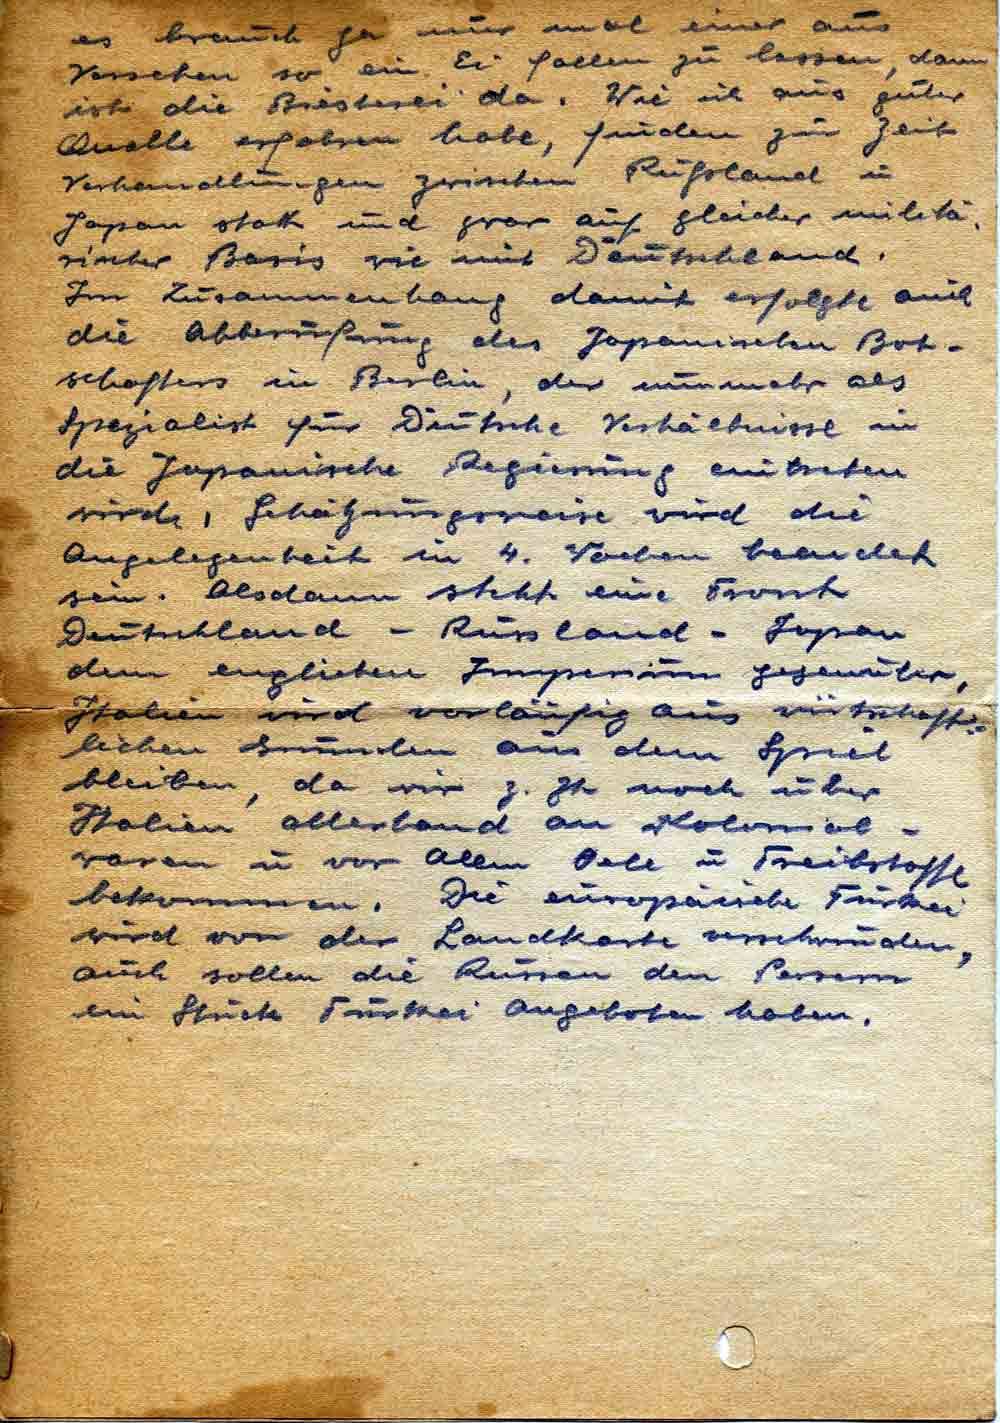 es brauch ja nur mal einer aus
Versehen so ein Ei fallen zu lassen, dann
ist die Biesterei da. Wie ich aus guter
Quelle erfahren habe, finden zur Zeit
Verhandlungen zwischen Rußland u
Japan statt und zwar auf gleicher militä.
rischer Basis wie mit Deutschland.
Im Zusammenhang damit erfolgte auch
die Abberufung des Japanischen Bot-
schafters in Berlin, der nunmehr als
Spezialist für Deutsche Verhältnisse in
die Japanische Regierung eintreten
wird. Schätzungsweise wird die
Angelegenheit in 4. Wochen beendet
sein. Alsdann steht eine Front
Deutschland - Russland - Japan
dem englischen Imperium gegenüber,
Italien wird vorläufig aus wirtschaft-
lichen Gründen aus dem Spiel
bleiben, da wir z. Zt noch über
Italien allerhand an Kolonial-
waren u vor Allem Oele u Treibstoffe
bekommen. Die europäische Türkei
wird von der Landkarte verschwinden,
auch sollen die Russen den Persern
ein Stück Türkei angeboten haben.